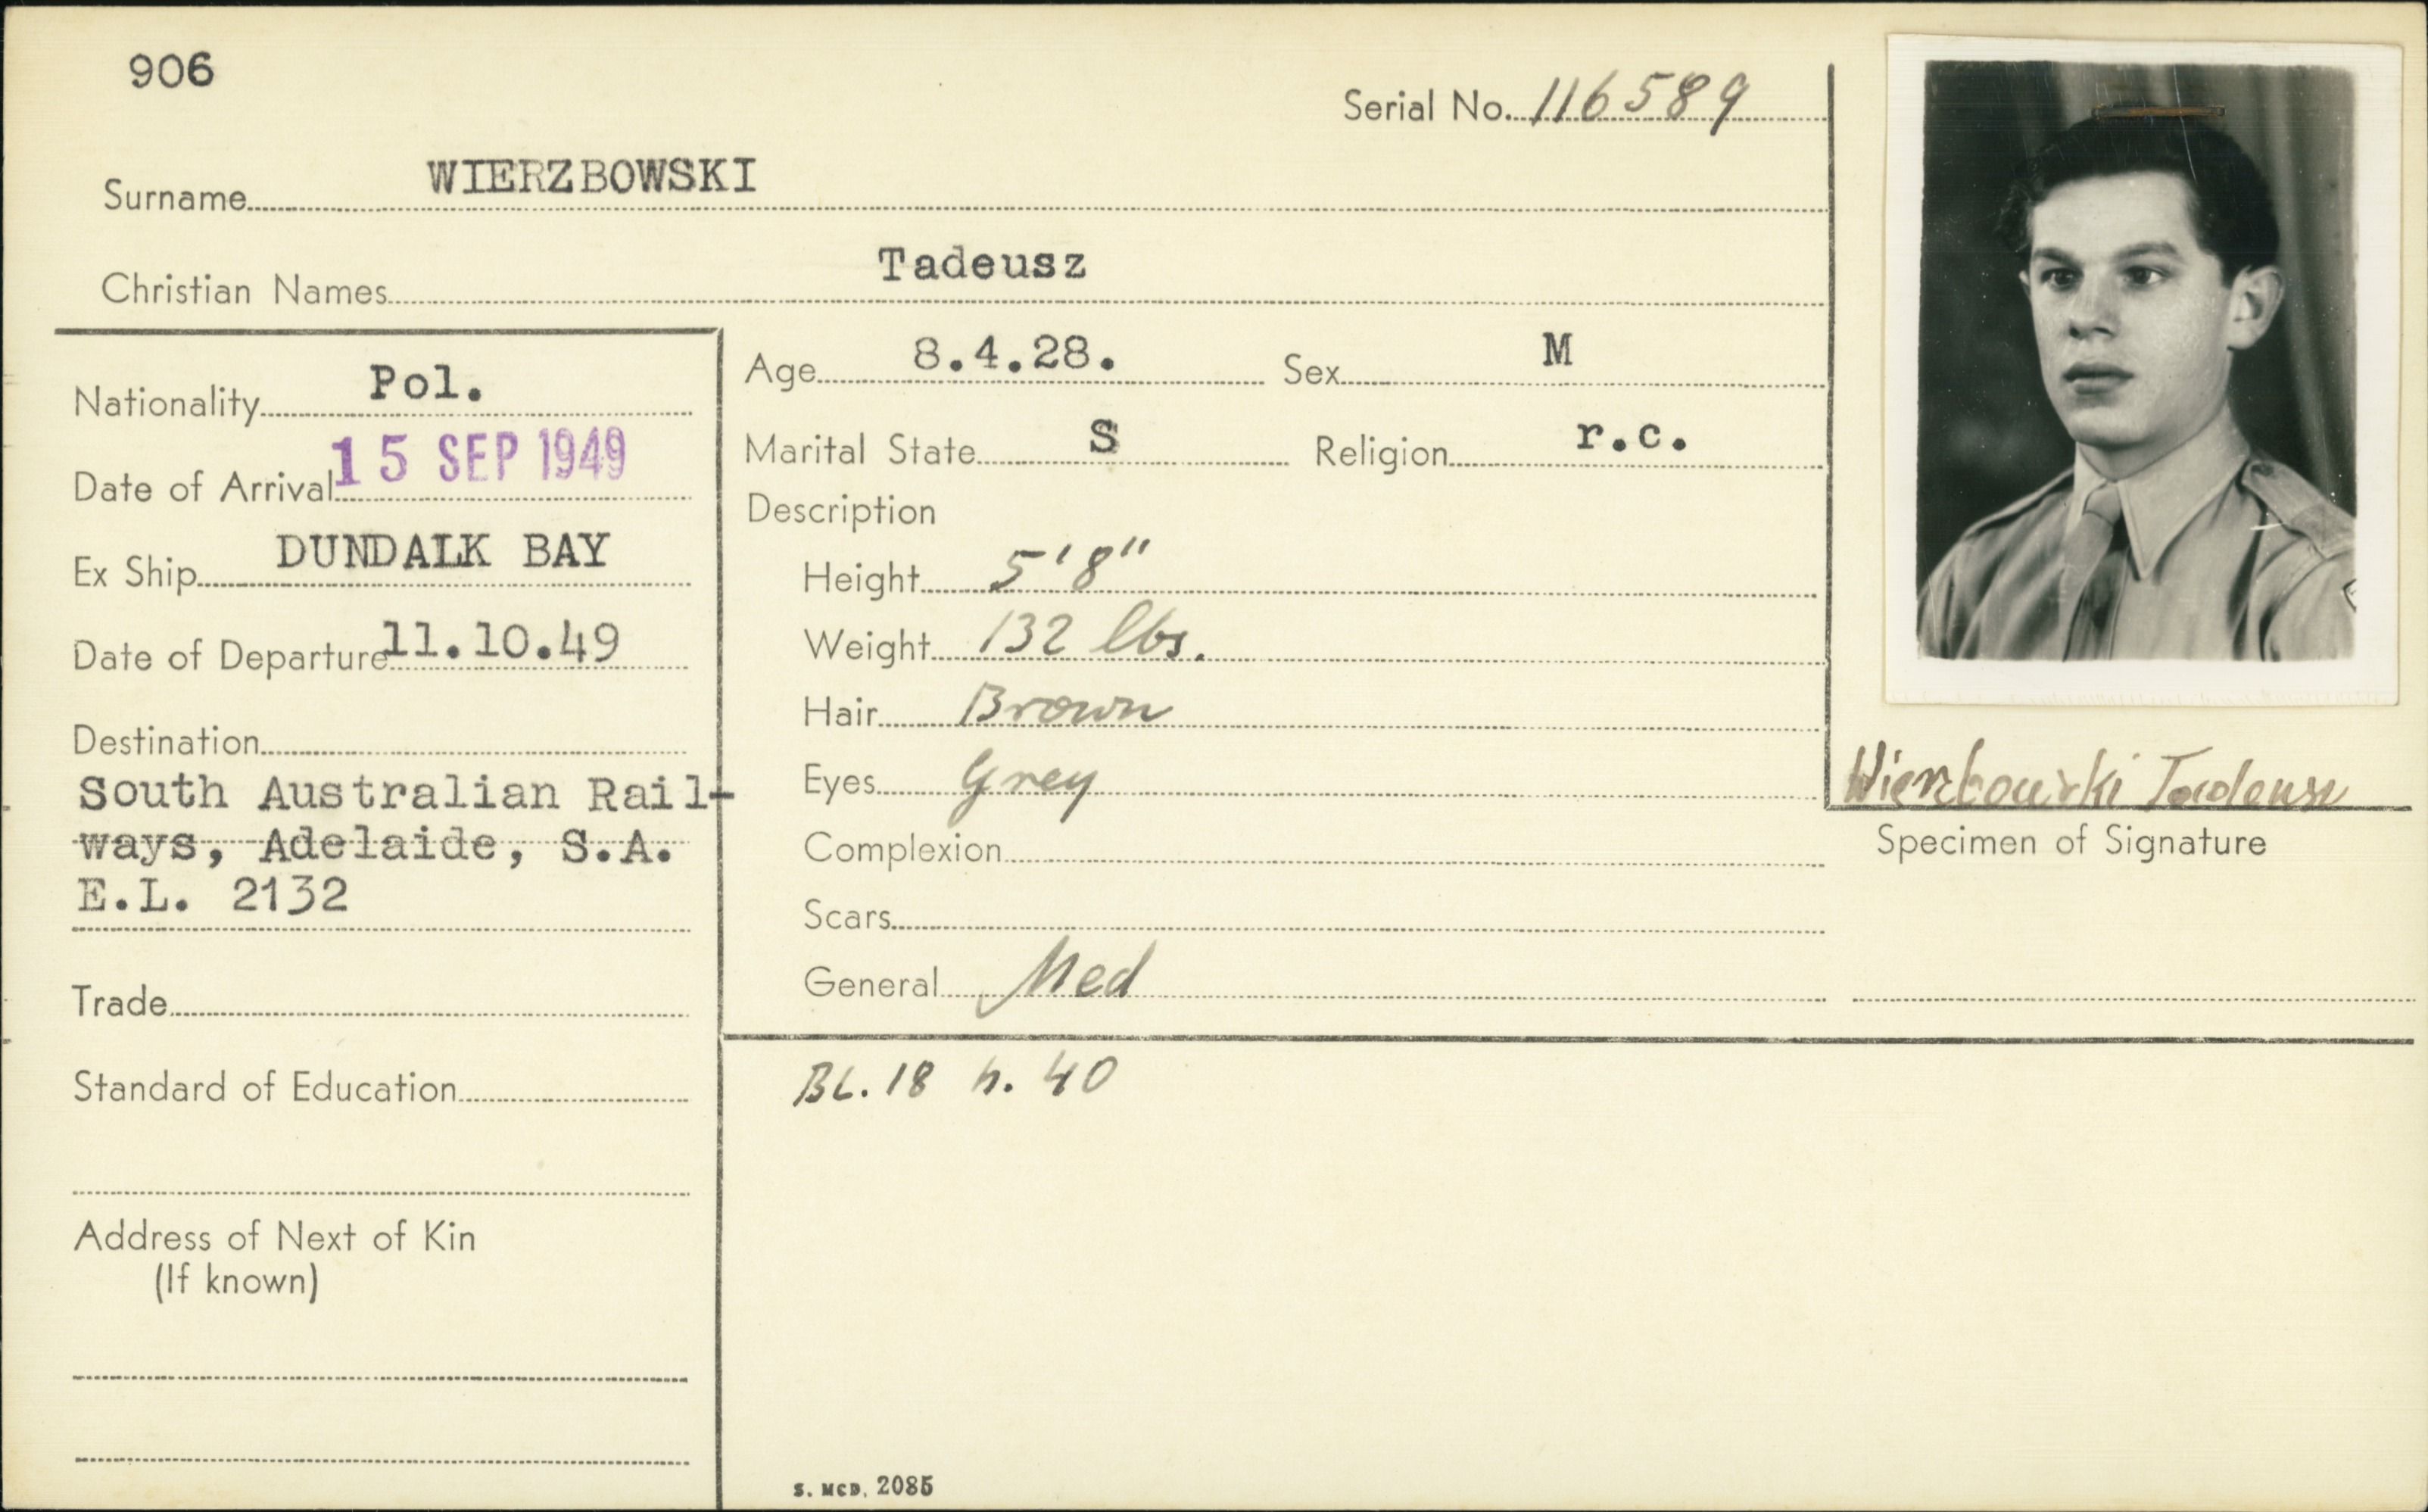 906
Serial No. 116589
Surname WIERZBOWSKI
Christian Names Tadeusz
Nationality Pol.
Date of Arrival 15 SEP 1949
Ex Ship DUNDALK BAY
Date of Departure 11.10.49
Destination
South Australian Rail-
ways, Adelaide, S.A.
E.L. 2132
Trade
Standard of Education
Address of Next of Kin
(If known)
Age 8.4.28. Sex M
Marital State S Religion r.c.
Description
Height 5'8"
Weight 132 lbs.
Hair Brown
Eyes Grey
Complexion
Scars
General Med
BL. 18 h. 40
S. McD. 2085
Wierzbowski Tadeusz
Specimen of Signature